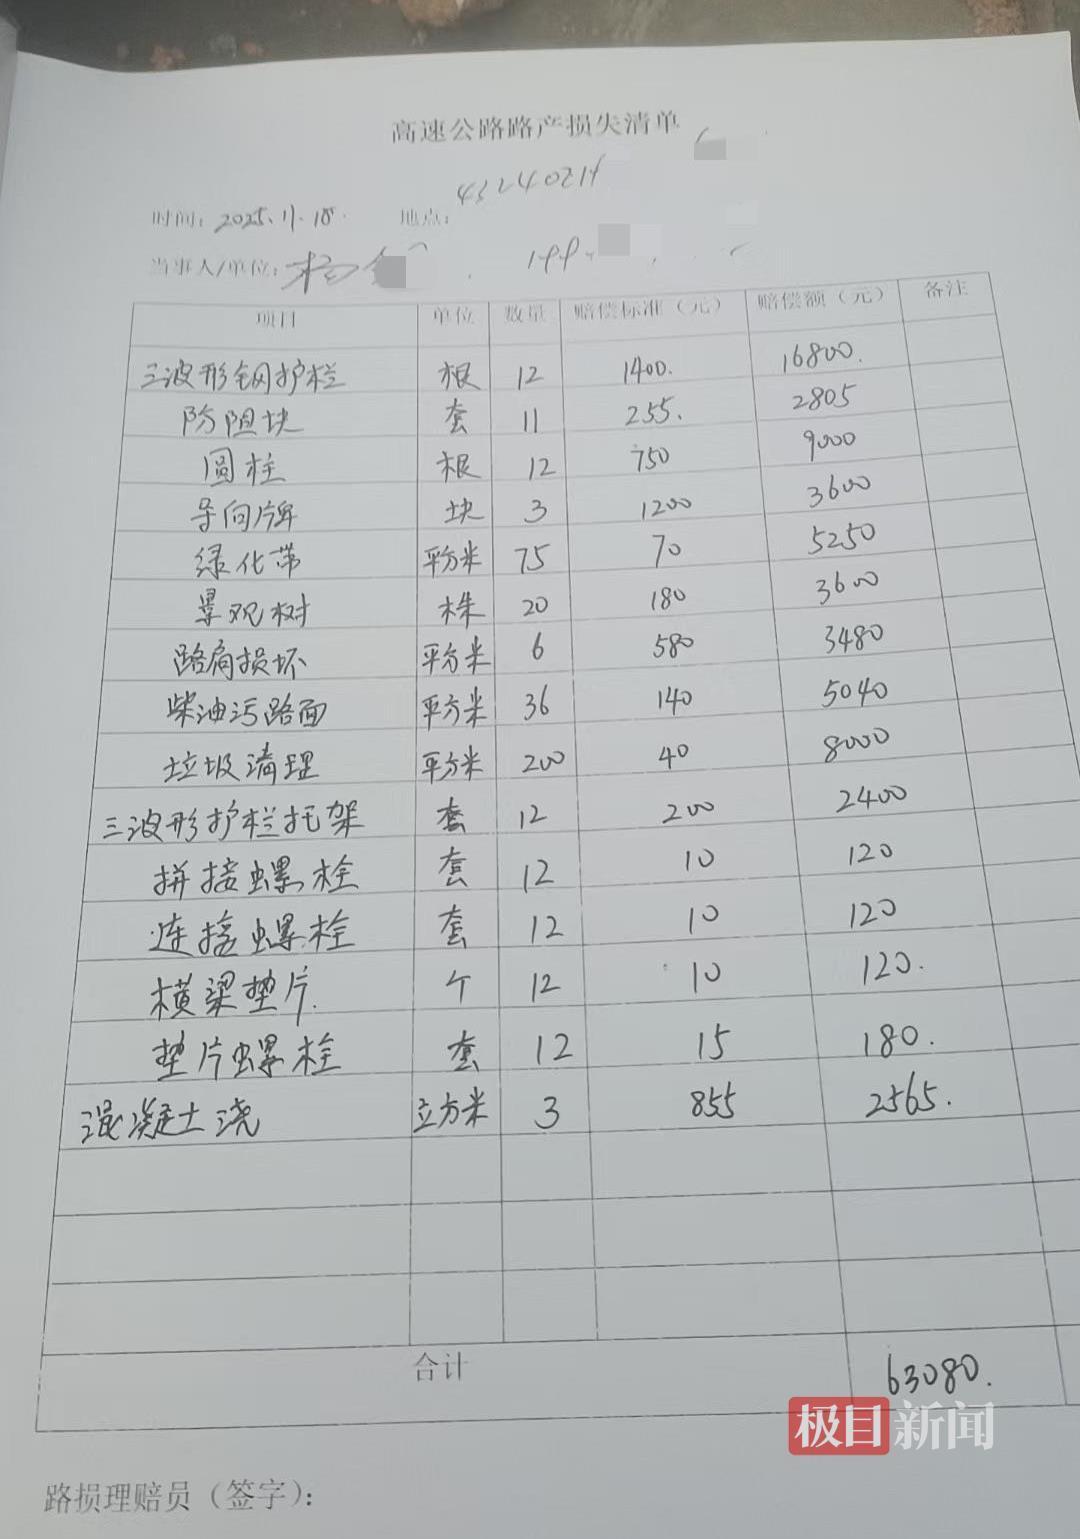 高速公路路产损失清单
时间: 2025.11.18. 地点:
当事人/单位: 杨
项目 单位 数量 赔偿标准（元） 赔偿额（元） 备注
三波形钢护栏 根 12 1400. 16800.
防阻块 套 11 255. 2805
圆柱 根 12 750 9000
导向牌 块 3 1200 3600
绿化带 平方米 75 70 5250
景观树 株 20 180 3600
路肩损坏 平方米 6 580 3480
柴油污路面 平方米 36 140 5040
垃圾清理 平方米 200 40 8000
三波形护栏托架 套 12 200 2400
拼接螺栓 套 12 10 120
连接螺栓 套 12 10 120
横梁垫片. 个 12 10 120.
垫片螺栓 套 12 15 180.
混凝土浇 立方米 3 855 2565.
合计 63080.
极目新闻
路损理赔员（签字）: